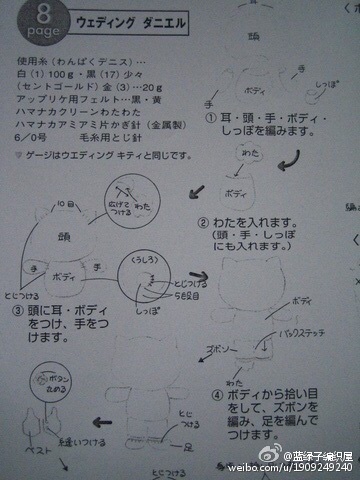 8
page
ウェディング ダニエル
使用糸（わんぱくデニス）…
白（1）100g・黒（17）少々
（セントゴールド）金（3）…20g
アップリケ用フェルト…黒・黄
ハマナカクリーンわたわた
ハマナカアミアミ片かぎ針（金属製）
6／0号　毛糸用とじ針
♥ ゲージはウエディング キティと同じです。
耳
頭
手
ボディ
手
しっぽ
① 耳・頭・手・ボディ・
しっぽを編みます。
わた
ボディ
② わたを入れます。
（頭・手・しっぽ
にも入れます。）
10目
広げて
つける
わた
頭
手
ボディ
手
とじつける
（うしろ）
とじつける
5段目
しっぽ
③ 頭に耳・ボディ
をつけ、手をつ
けます。
ボディ
バックステッチ
ズボン
わた
④ ボディから拾い目
をして、ズボンを
編み、足を編んで
つけます。
ボタン
とめる
ベスト
縫いつける
とじ
つける
足
とじつける
@蓝绿子编织屋
weibo.com/u/1909249240